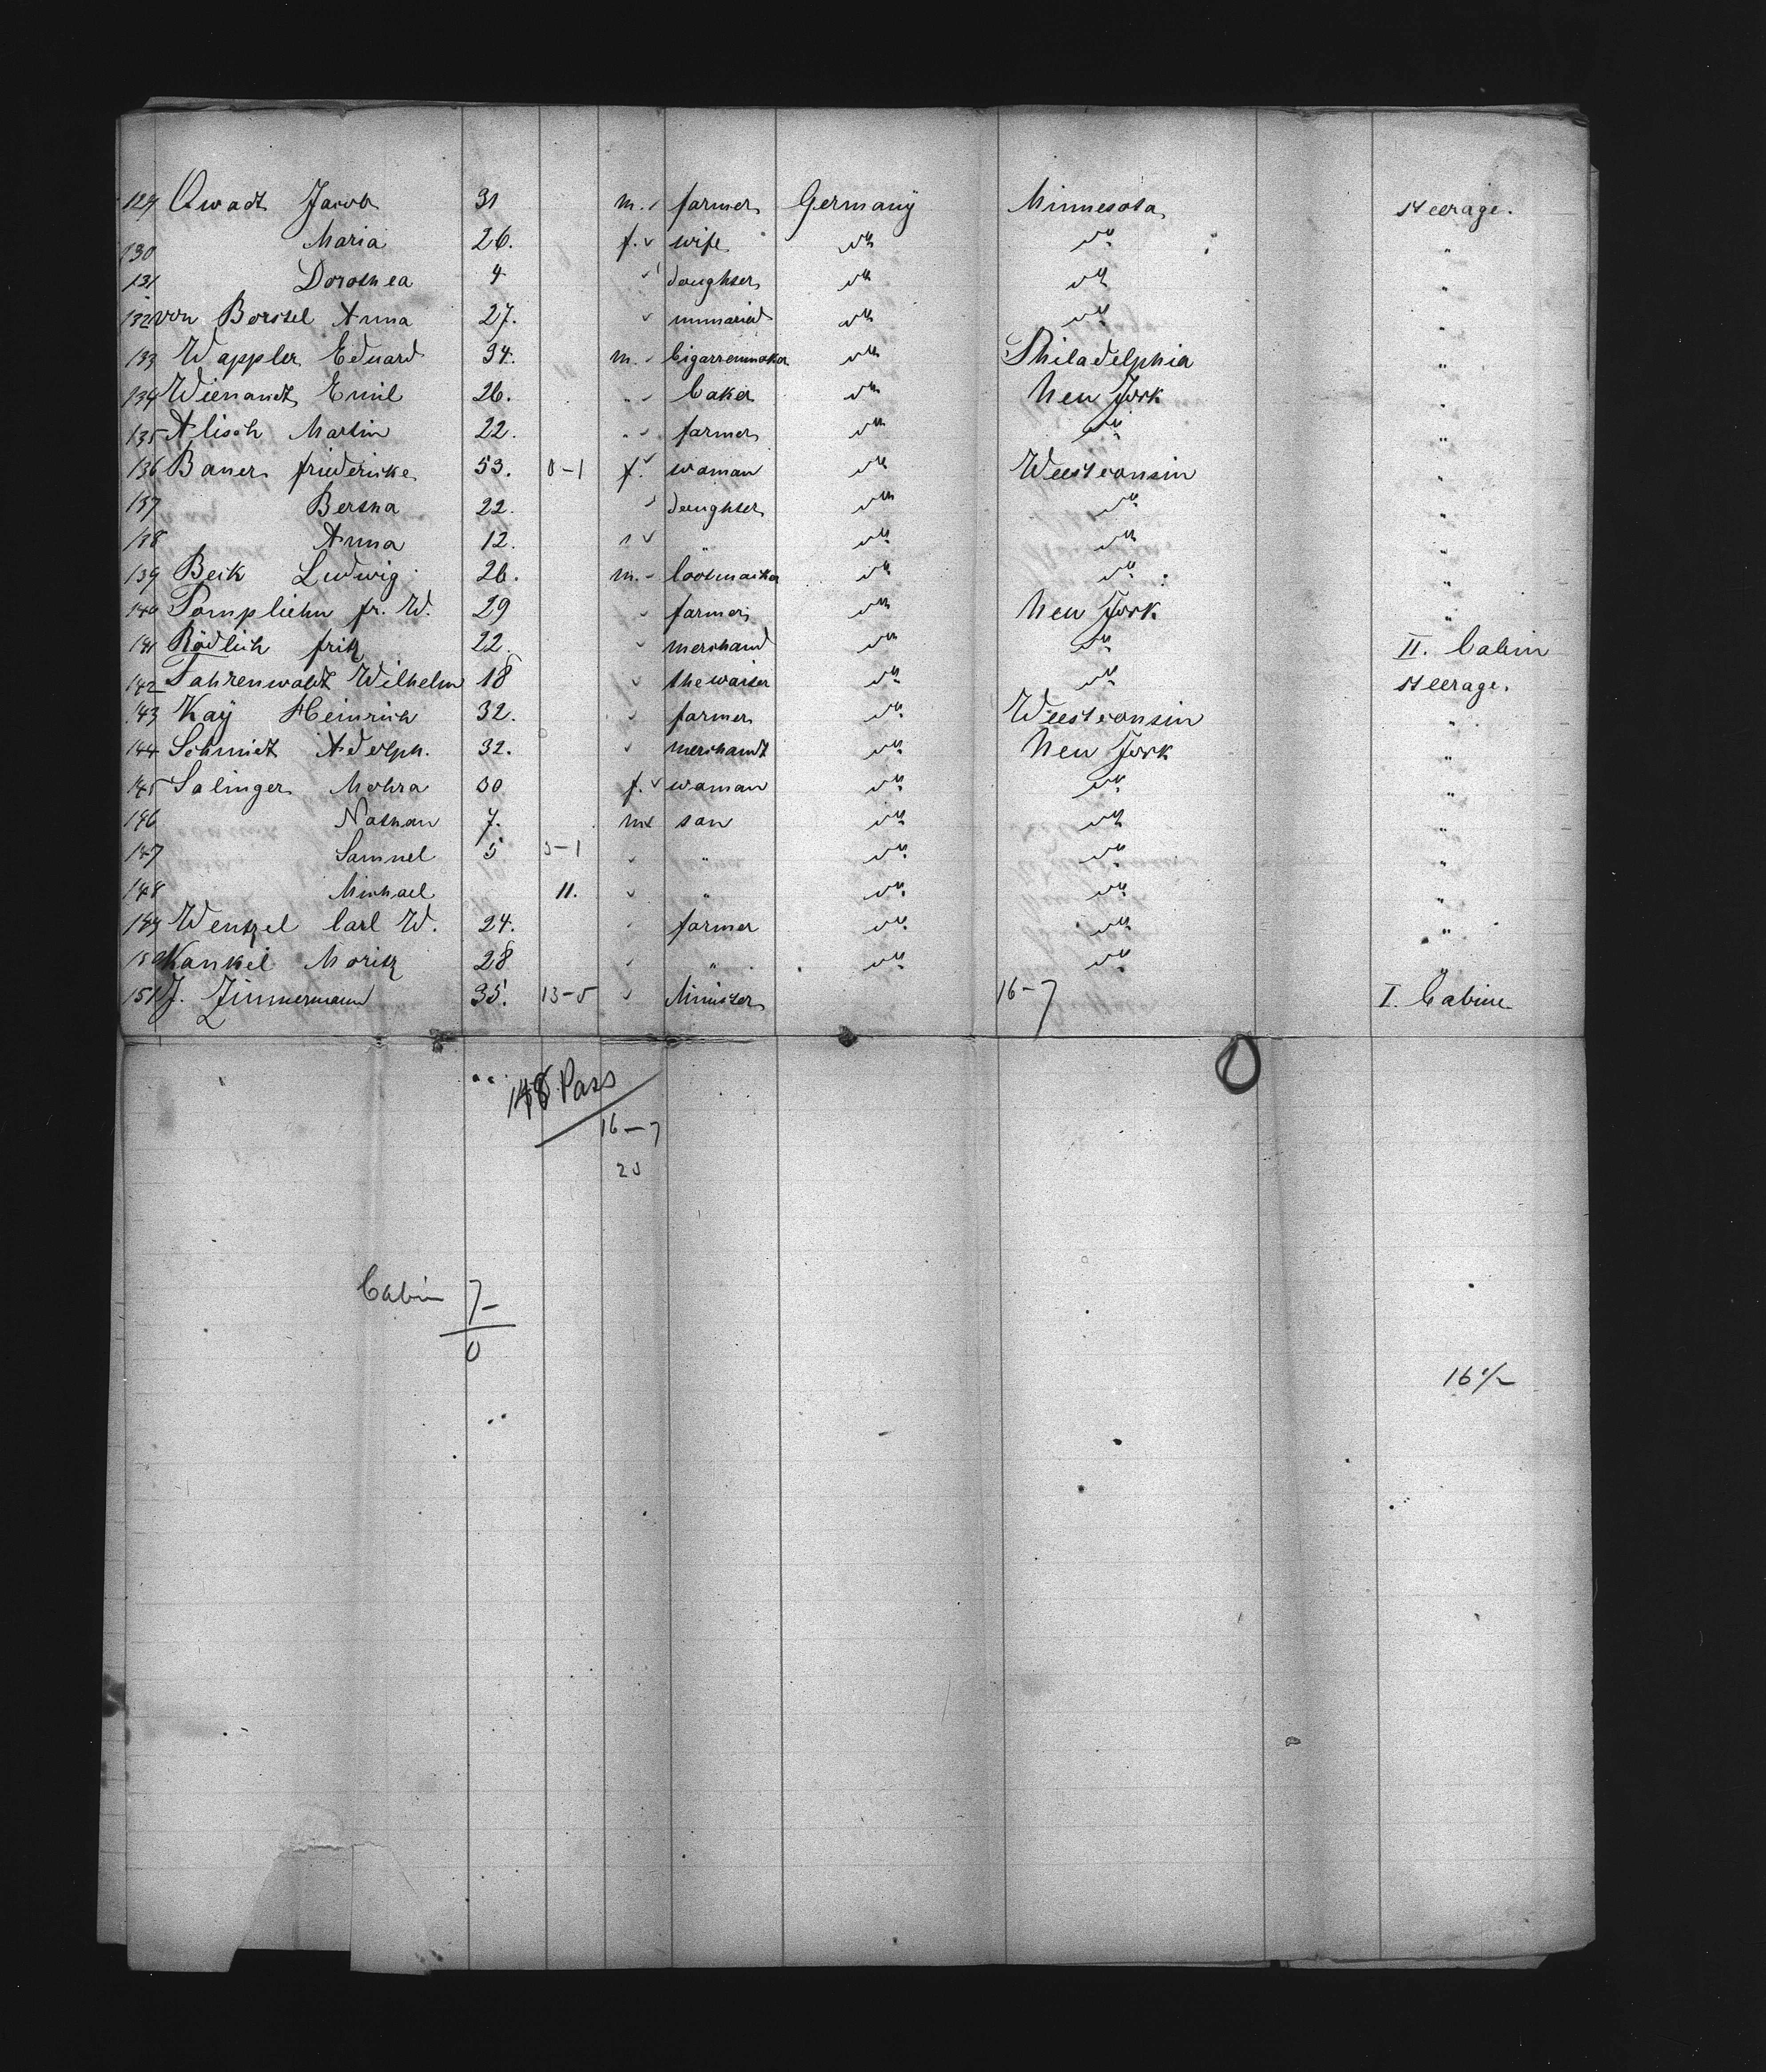 129 Qwadt Jacob 31 m. farmer Germany Minnesota steerage.
130 Maria 26. f. wife " " "
131 Dorothea 4 " doughter " " "
132 von Borstel Anna 27. " unmaried " " "
133 Wappler Eduard 34. m. Cigarrenmaker " Philadelphia "
134 Wienandt Emil 26. " baker " New York "
135 Alisch Martin 22. " farmer " " "
136 Bauer friedericke 53. 0-1 f. woman " Weestconsin "
137 Bertha 22. " doughter " " "
138 Anna 12. " " " " "
139 Beik Ludwig 26. m. bootmaiker " " "
140 Pompliehn fr. W. 29 " farmer " New York "
141 Rödlich fritz 22. " merchand " " II. Cabin
142 Fahrenwaldt Wilhelm 18 " the waiter " " steerage.
143 Kaÿ Heinrich 32. " farmer " Weestconsin "
144 Schmidt Adolph. 32. " merchandt " New York "
145 Salinger 30 f. woman " " "
146 Nathan 7. m son " " "
147 Samuel 5 5-1 " " " " "
148 Michael 11. " " " " "
149 Wentzel Carl W. 24. " farmer " " "
150 Kankel Moritz 28 " " " " "
151 J. Zimmermann 35. 13-5 " Minister 16-7 I. Cabine
Pass
16-7
Cabin 7-
0